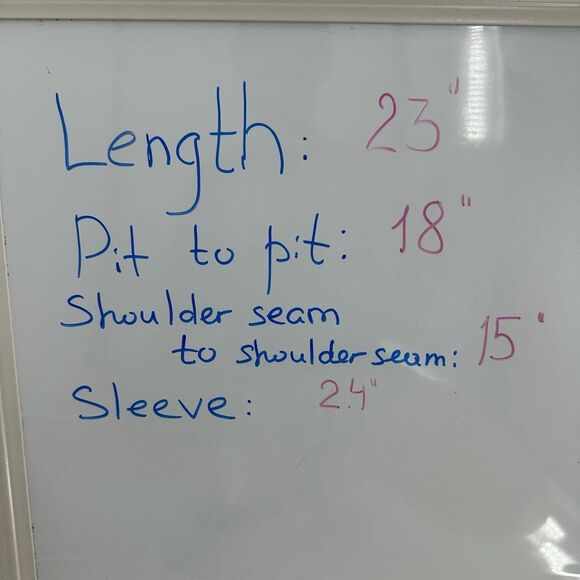 Length: 23"
Pit to pit: 18"
Shoulder seam
to shoulder seam: 15"
Sleeve: 24"